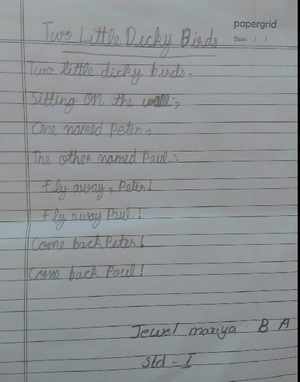 papergrid
Date: / /
Two Little Dicky Birds
Two little dicky birds,
Sitting on the wall;
One named Peter,
The other named Paul.
Fly away, Peter!
Fly away Paul!
Come back Peter!
Come back Poul!
Jewel mariya B A
Std - I